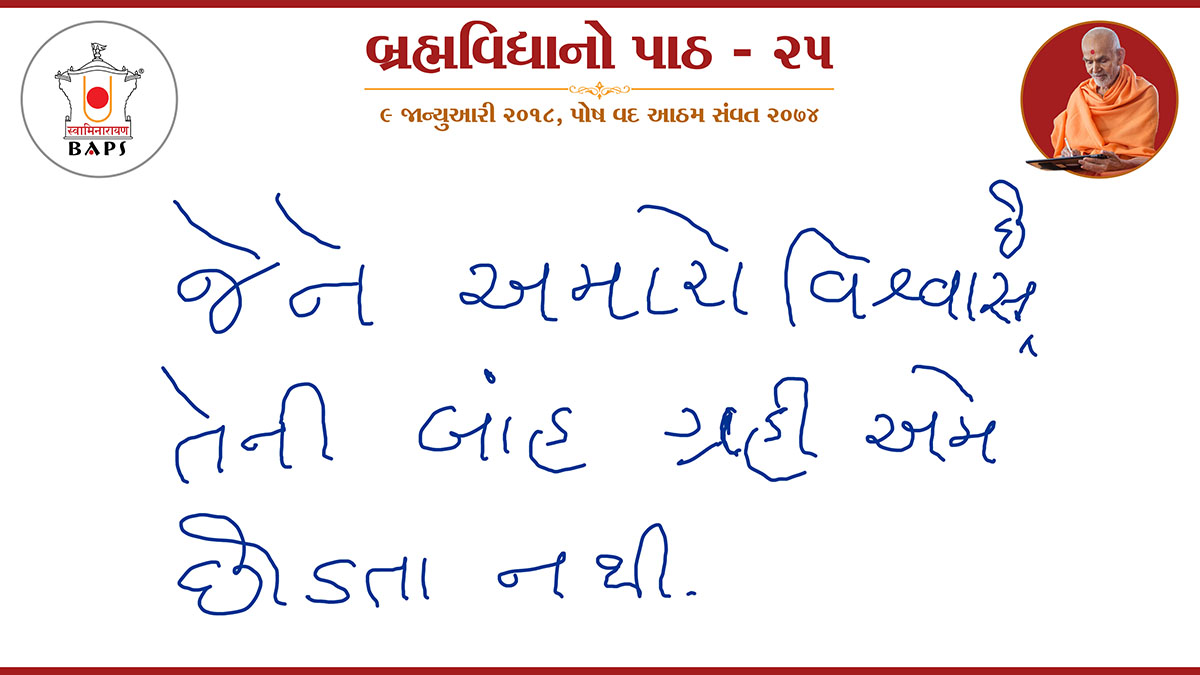 બ્રહ્મવિદ્યાનો પાઠ - ૨૫
૯ જાન્યુઆરી ૨૦૧૮, પોષ વદ આઠમ સંવત ૨૦૭૪
स्वामिनारायण
®
BAPS
જેને અમારો વિશ્વાસ છે
તેની બાંહ ગ્રહી અમે
છોડતા નથી.